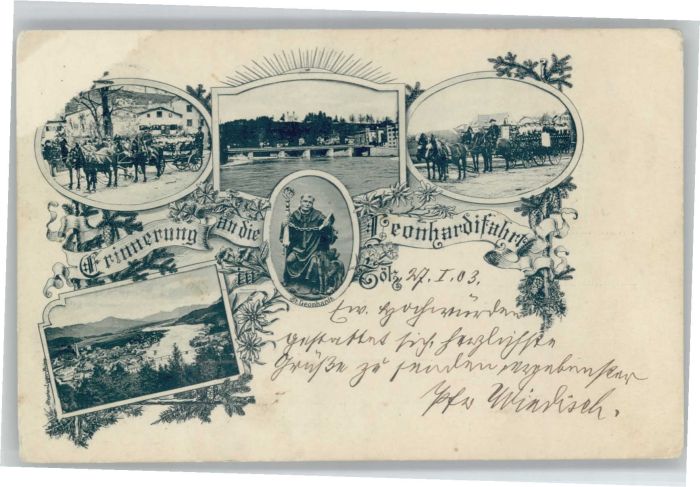 Erinnerung an die Leonhardifahrt
in Tölz 27. I. 03.
St. Leonhard.
Ew. Hochwürden
gestattet sich herzlichste
Grüße zu senden ergebenster
Pfr Windisch.